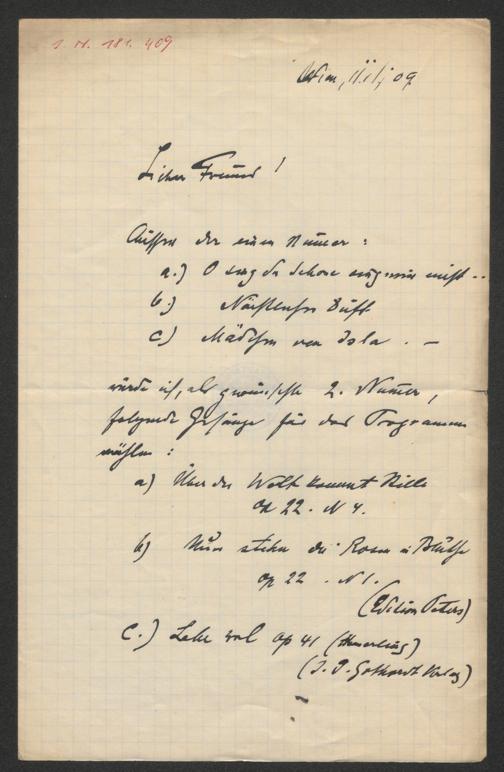 I. N. 181.409
Wien, 11./1/. 09
Lieber Freund!
Ausser der einen Numer:
a.) O sing du Schöne sing mir nicht ..
b.) Nächtliche Duft
c) Mädchen von Isla . –
würde ich, als gewünschte 2. Numer,
folgende Gesänge für das Programm
wählen:
a) Über die Welt kommt Stille
op 22. N 4.
b) Nun stehn die Rosen in Blüthe
op 22. N 1.
(Edition Peters)
c.) Lebe wol op 41 (Hamerling)
(J. P. Gotthardt Verlag)